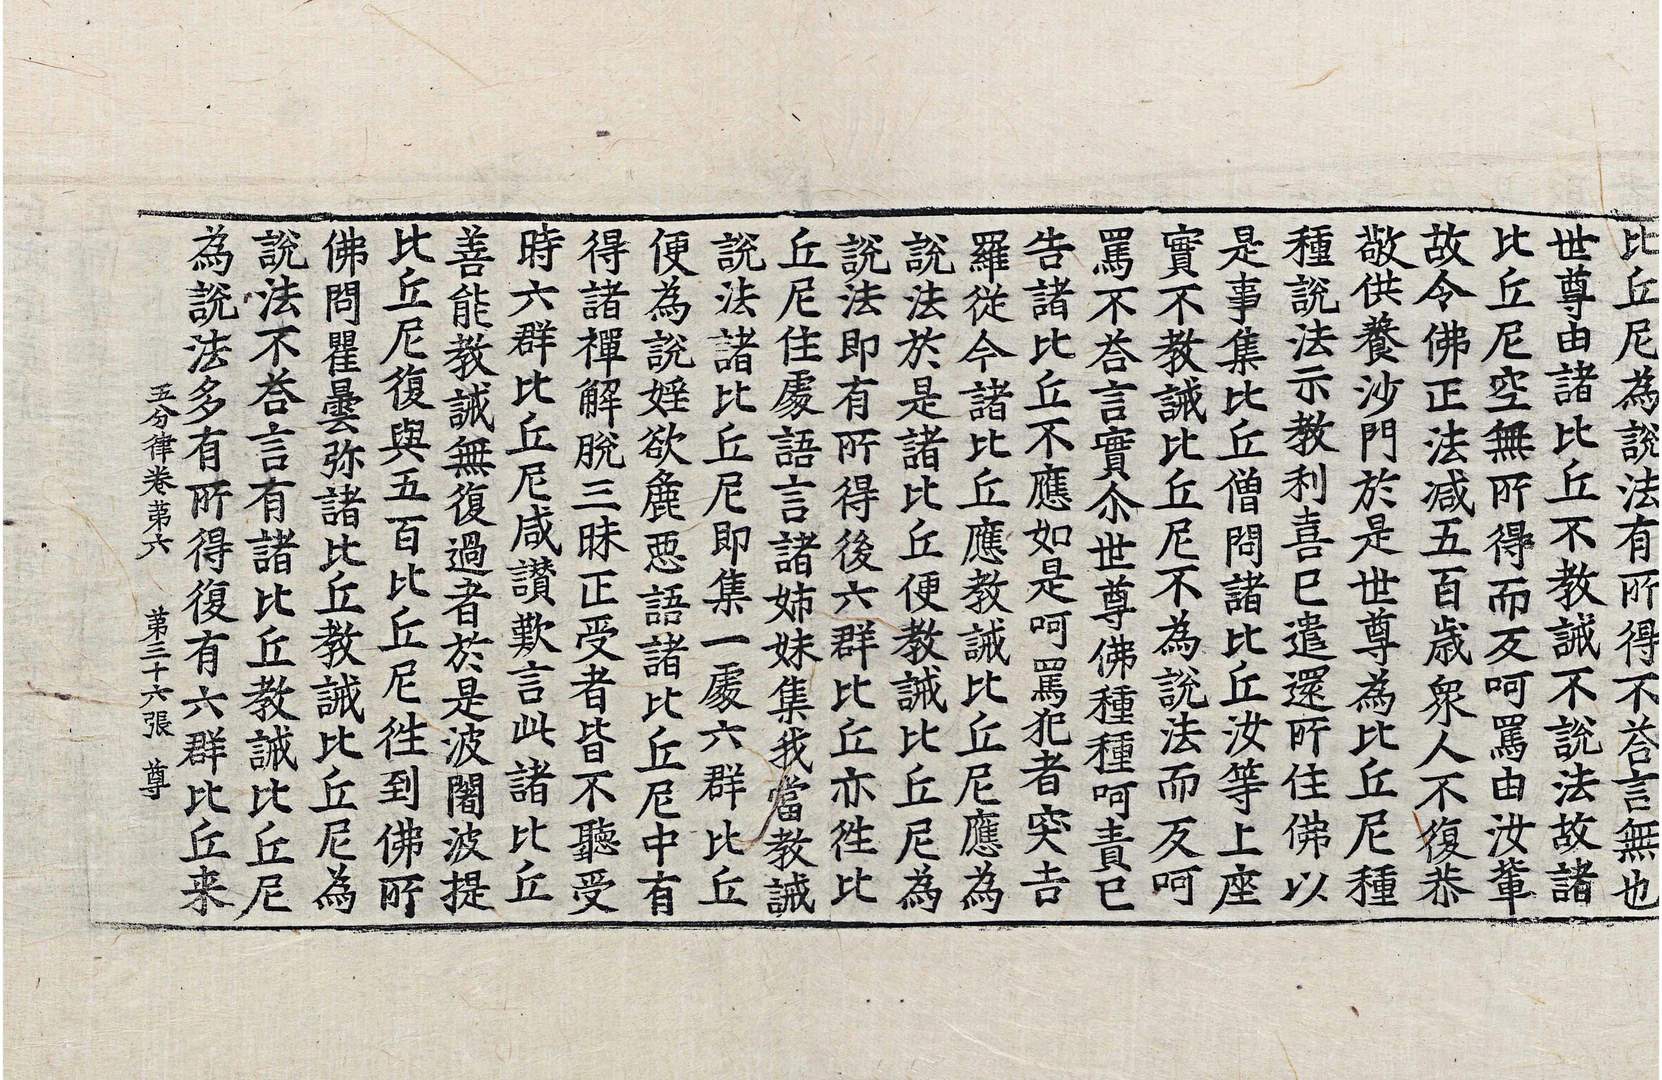 比丘尼為說法有所得不荅言無也
世尊由諸比丘不教誡不說法故諸
比丘尼空無所得而反呵罵由汝輩
故令佛正法減五百歲衆人不復恭
敬供養沙門於是世尊為比丘尼種
種說法示教利喜已遣還所住佛以
是事集比丘僧問諸比丘汝等上座
實不教誡比丘尼不為說法而反呵
罵不荅言實尒世尊佛種種呵責已
告諸比丘不應如是呵罵犯者突吉
羅從今諸比丘應教誡比丘尼應為
說法於是諸比丘便教誡比丘尼為
說法即有所得後六群比丘亦徃比
丘尼住處語言諸姊妹集我當教誡
說法諸比丘尼即集一處六群比丘
便為說婬欲麁惡語諸比丘尼中有
得諸禪解脫三昧正受者皆不聽受
時六群比丘尼咸讃歎言此諸比丘
善能教誡無復過者於是波闍波提
比丘尼復與五百比丘尼徃到佛所
佛問瞿曇弥諸比丘教誡比丘尼為
說法不荅言有諸比丘教誡比丘尼
為說法多有所得復有六群比丘来
五分律卷苐六 苐三十六張 尊